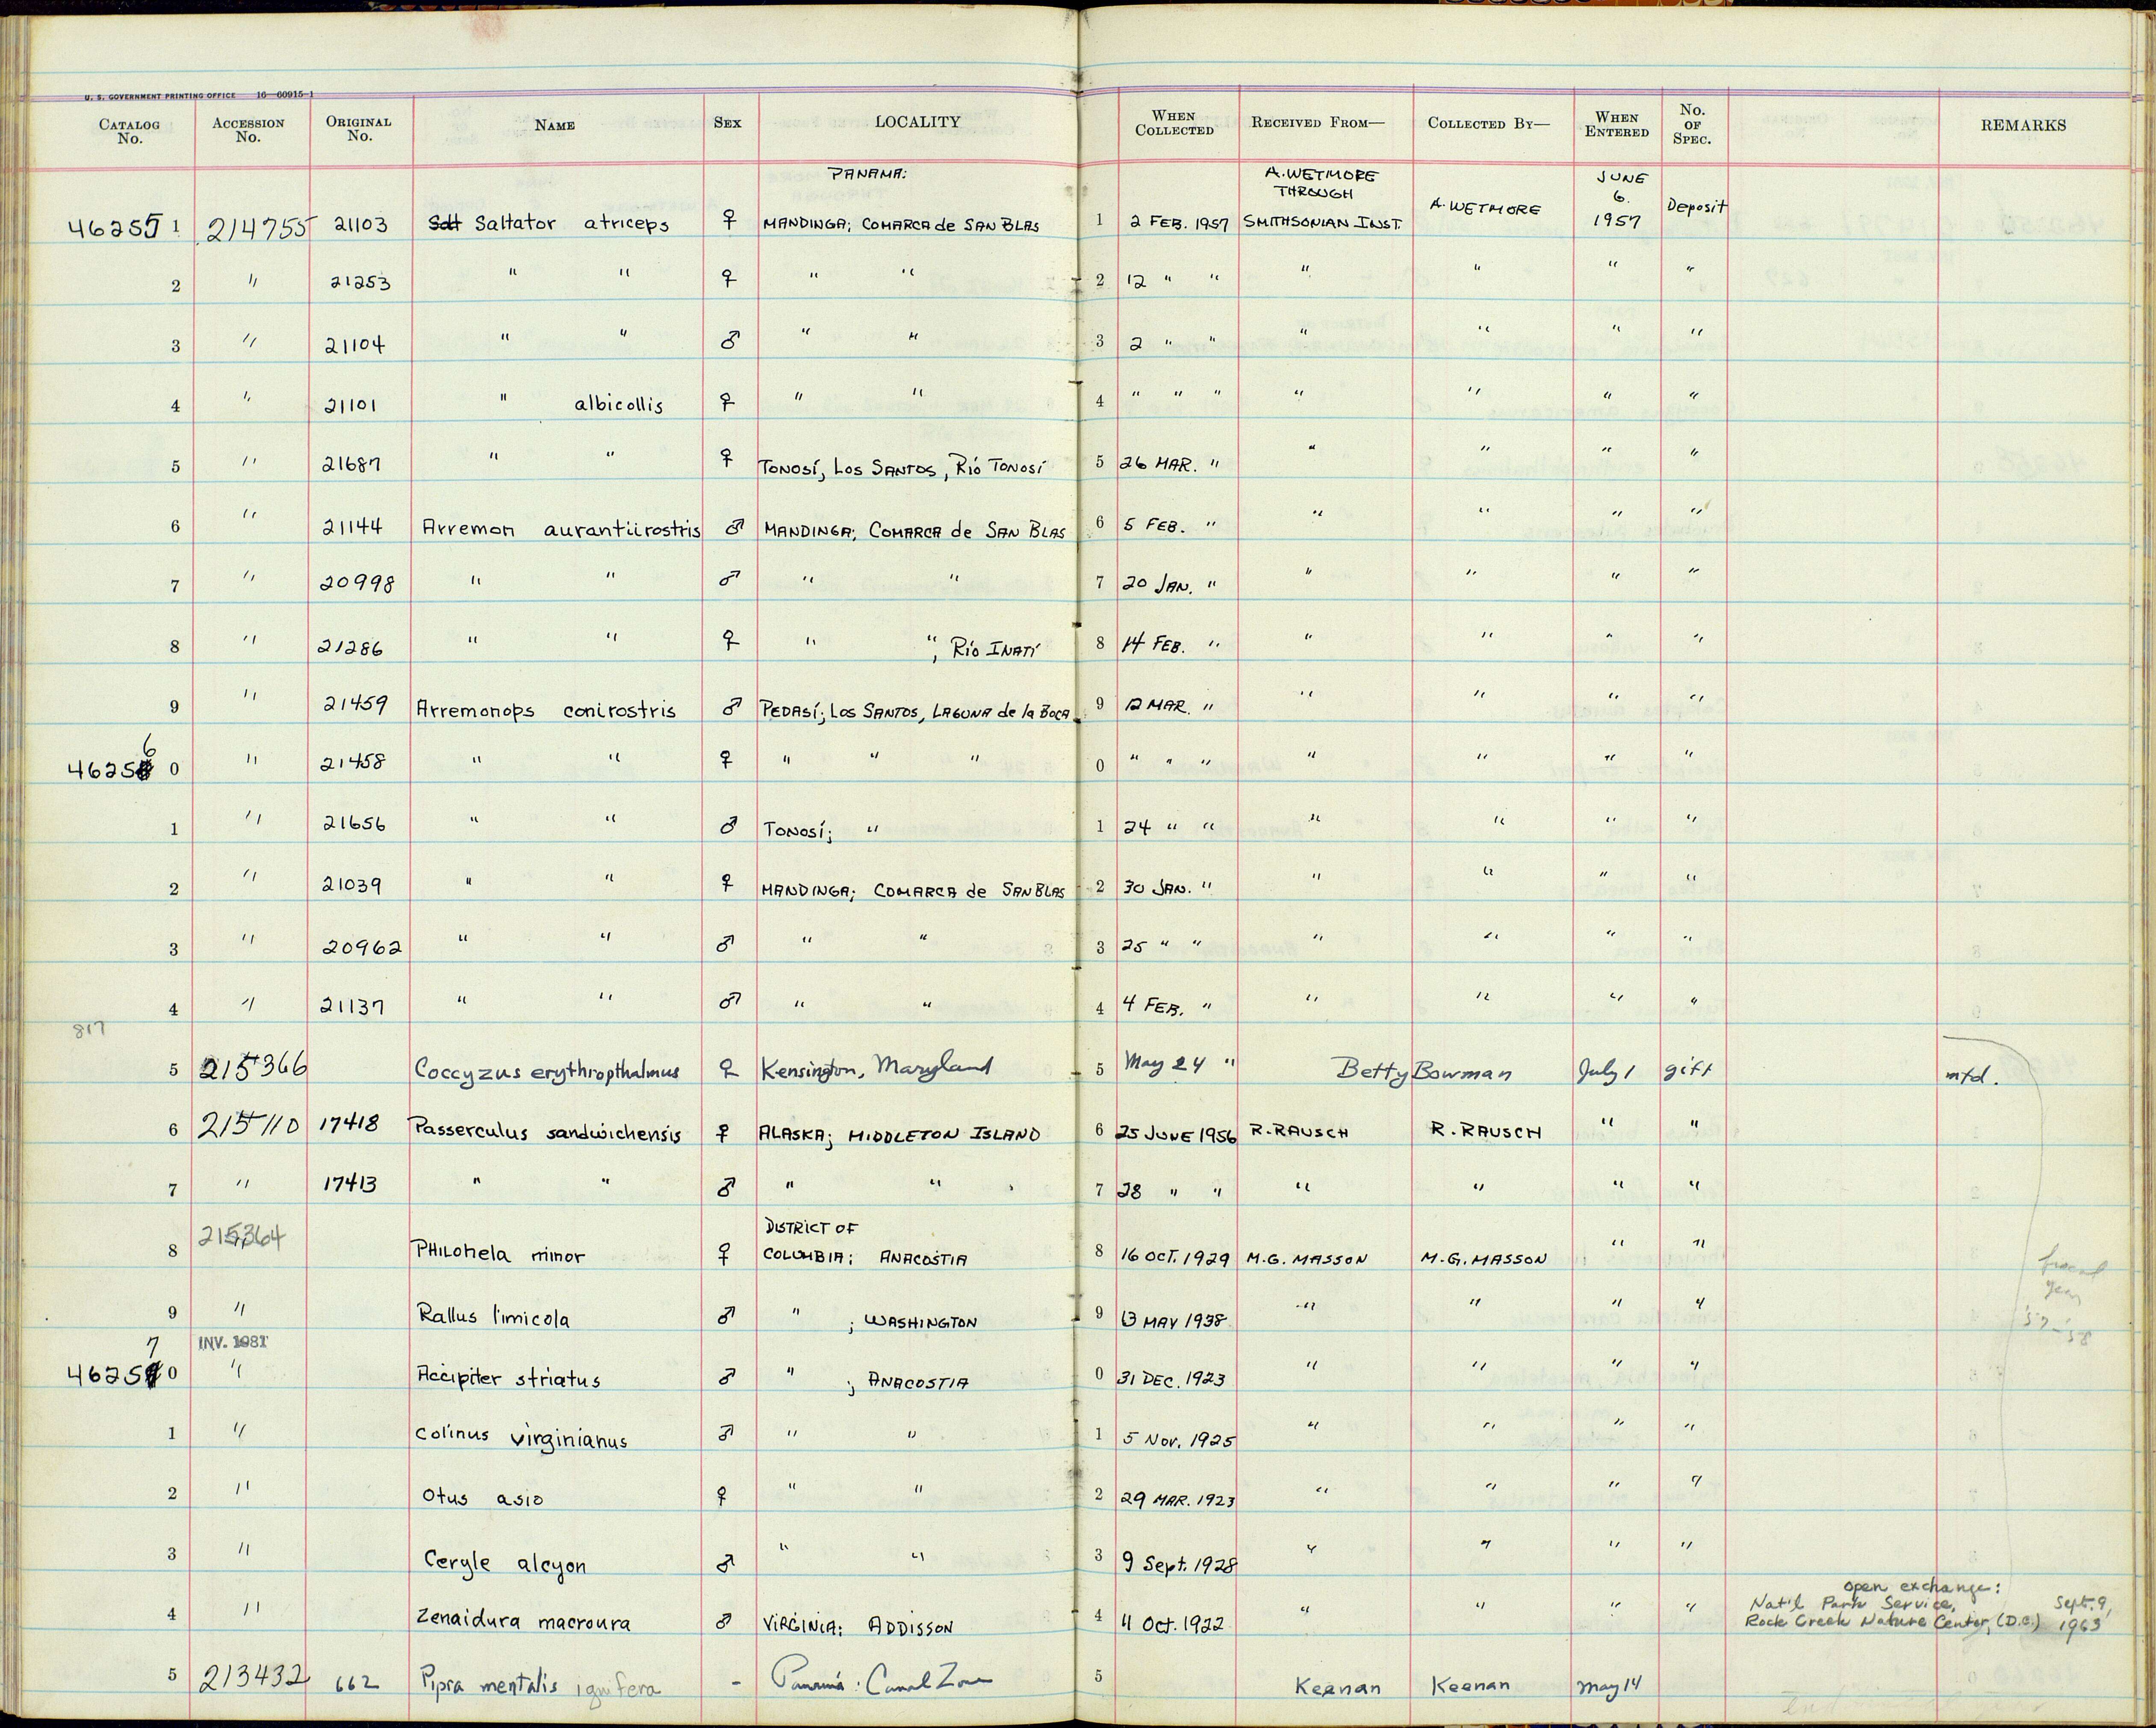 U. S. GOVERNMENT PRINTING OFFICE 16—60915-1
CATALOG No. ACCESSION No. ORIGINAL No. NAME SEX LOCALITY WHEN COLLECTED RECEIVED FROM— COLLECTED BY— WHEN ENTERED No. OF SPEC. REMARKS
PANAMA: A. WETMORE THROUGH JUNE 6.
462551 214755 21103 Salt Saltator atriceps ♀ MANDINGA; COMARCA de SAN BLAS 1 2 FEB. 1957 SMITHSONIAN INST. A. WETMORE 1957 Deposit
2 " 21253 " " ♀ " " 2 12 " " " " " "
3 " 21104 " " ♂ " " 3 2 " " " " " "
4 " 21101 " albicollis ♀ " " 4 " " " " " " "
5 " 21687 " " ♀ TONOSÍ, LOS SANTOS, RÍO TONOSÍ 5 26 MAR. " " " " "
6 " 21144 Arremon aurantiirostris ♂ MANDINGA; COMARCA de SAN BLAS 6 5 FEB. " " " " "
7 " 20998 " " ♂ " " 7 20 JAN. " " " " "
8 " 21286 " " ♀ " ", RÍO INATÍ 8 14 FEB. " " " " "
9 " 21459 Arremonops conirostris ♂ PEDASÍ; LOS SANTOS, LAGUNA de la BOCA 9 12 MAR. " " " " "
6
46258 0 " 21458 " " ♀ " " " 0 " " " " " " "
1 " 21656 " " ♂ TONOSÍ; " 1 24 " " " " " "
2 " 21039 " " ♀ MANDINGA; COMARCA de SAN BLAS 2 30 JAN. " " " " "
3 " 20962 " " ♂ " " 3 25 " " " " " "
4 " 21137 " " ♂ " " 4 4 FEB. " " " " "
817
5 215366 Coccyzus erythropthalmus ♀ Kensington, Maryland 5 May 24 " Betty Bowman July 1 gift mtd.
6 215110 17418 Passerculus sandwichensis ♀ ALASKA; MIDDLETON ISLAND 6 25 JUNE 1956 R. RAUSCH R. RAUSCH " "
7 " 17413 " " ♂ " " 7 28 " " " " " "
DISTRICT OF
8 215364 PHILOhela minor ♀ COLUMBIA; ANACOSTIA 8 16 OCT. 1929 M.G. MASSON M.G. MASSON " "
fiscal year
9 " Rallus limicola ♂ " ; WASHINGTON 9 13 MAY 1938 " " " " '57-'58
7 INV. 1981
46259 0 " Accipiter striatus ♂ " ; ANACOSTIA 0 31 DEC. 1923 " " " "
1 " Colinus virginianus ♂ " " 1 5 Nov. 1925 " " " "
2 " Otus asio ♀ " " 2 29 MAR. 1923 " " " "
3 " Ceryle alcyon ♂ " " 3 9 Sept. 1928 " " " "
open exchange:
Nat'l Park Service, Sept. 9,
4 " Zenaidura macroura ♂ VIRGINIA; ADDISSON 4 11 Oct. 1922 " " " " Rock Creek Nature Center, (D.C.) 1963
5 213432 662 Pipra mentalis ignifera - Panamá: Canal Zone 5 Keenan Keenan May 14